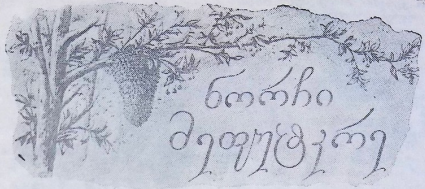 ნორჩი
მეფუტკრე